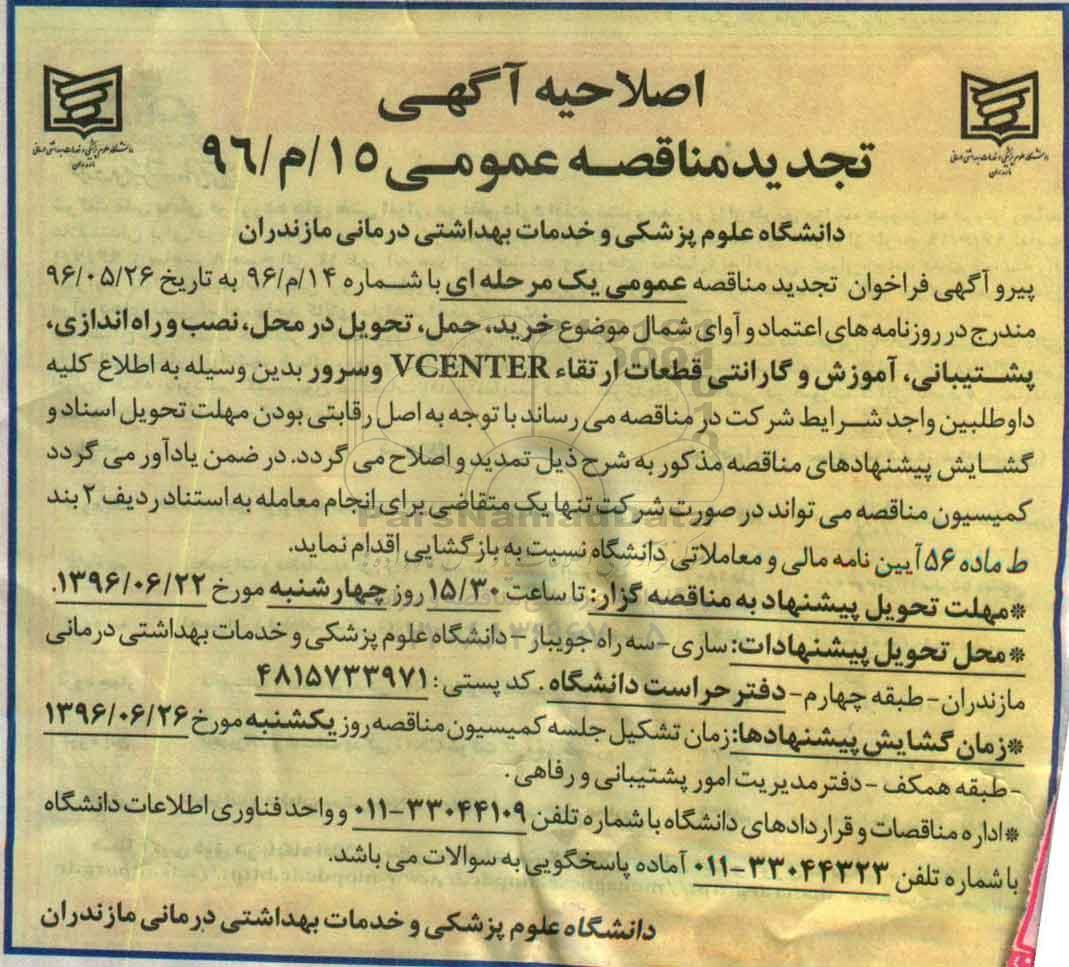 اصلاحیه آگهی
تجدید مناقصه عمومی ۱۵/م/۹۶
دانشگاه علوم پزشکی و خدمات بهداشتی درمانی مازندران
دانشگاه علوم پزشکی و خدمات بهداشتی درمانی مازندران
دانشگاه علوم پزشکی و خدمات بهداشتی درمانی مازندران
پیرو آگهی فراخوان تجدید مناقصه عمومی یک مرحله ای با شماره ۱۴/م/۹۶ به تاریخ ۹۶/۰۵/۲۶
مندرج در روزنامه های اعتماد و آوای شمال موضوع خرید، حمل، تحویل در محل، نصب و راه اندازی،
پشتیبانی، آموزش و گارانتی قطعات ارتقاء VCENTER وسرور بدین وسیله به اطلاع کلیه
داوطلبین واجد شرایط شرکت در مناقصه می رساند با توجه به اصل رقابتی بودن مهلت تحویل اسناد و
گشایش پیشنهادهای مناقصه مذکور به شرح ذیل تمدید و اصلاح می گردد. در ضمن یادآور می گردد
کمیسیون مناقصه می تواند در صورت شرکت تنها یک متقاضی برای انجام معامله به استناد ردیف ۲ بند
ط ماده ۵۶ آیین نامه مالی و معاملاتی دانشگاه نسبت به بازگشایی اقدام نماید.
*مهلت تحویل پیشنهاد به مناقصه گزار: تا ساعت ۱۵/۳۰ روز چهارشنبه مورخ ۱۳۹۶/۰۶/۲۲.
*محل تحویل پیشنهادات: ساری-سه راه جویبار- دانشگاه علوم پزشکی و خدمات بهداشتی درمانی
مازندران- طبقه چهارم- دفتر حراست دانشگاه . کد پستی: ۴۸۱۵۷۳۳۹۷۱
*زمان گشایش پیشنهادها: زمان تشکیل جلسه کمیسیون مناقصه روز یکشنبه مورخ ۱۳۹۶/۰۶/۲۶
- طبقه همکف - دفتر مدیریت امور پشتیبانی و رفاهی .
*اداره مناقصات و قراردادهای دانشگاه با شماره تلفن ۳۳۰۴۴۱۰۹-۰۱۱ و واحد فناوری اطلاعات دانشگاه
با شماره تلفن ۳۳۰۴۴۳۲۳-۰۱۱ آماده پاسخگویی به سوالات می باشد.
دانشگاه علوم پزشکی و خدمات بهداشتی درمانی مازندران
ParsNamadDat